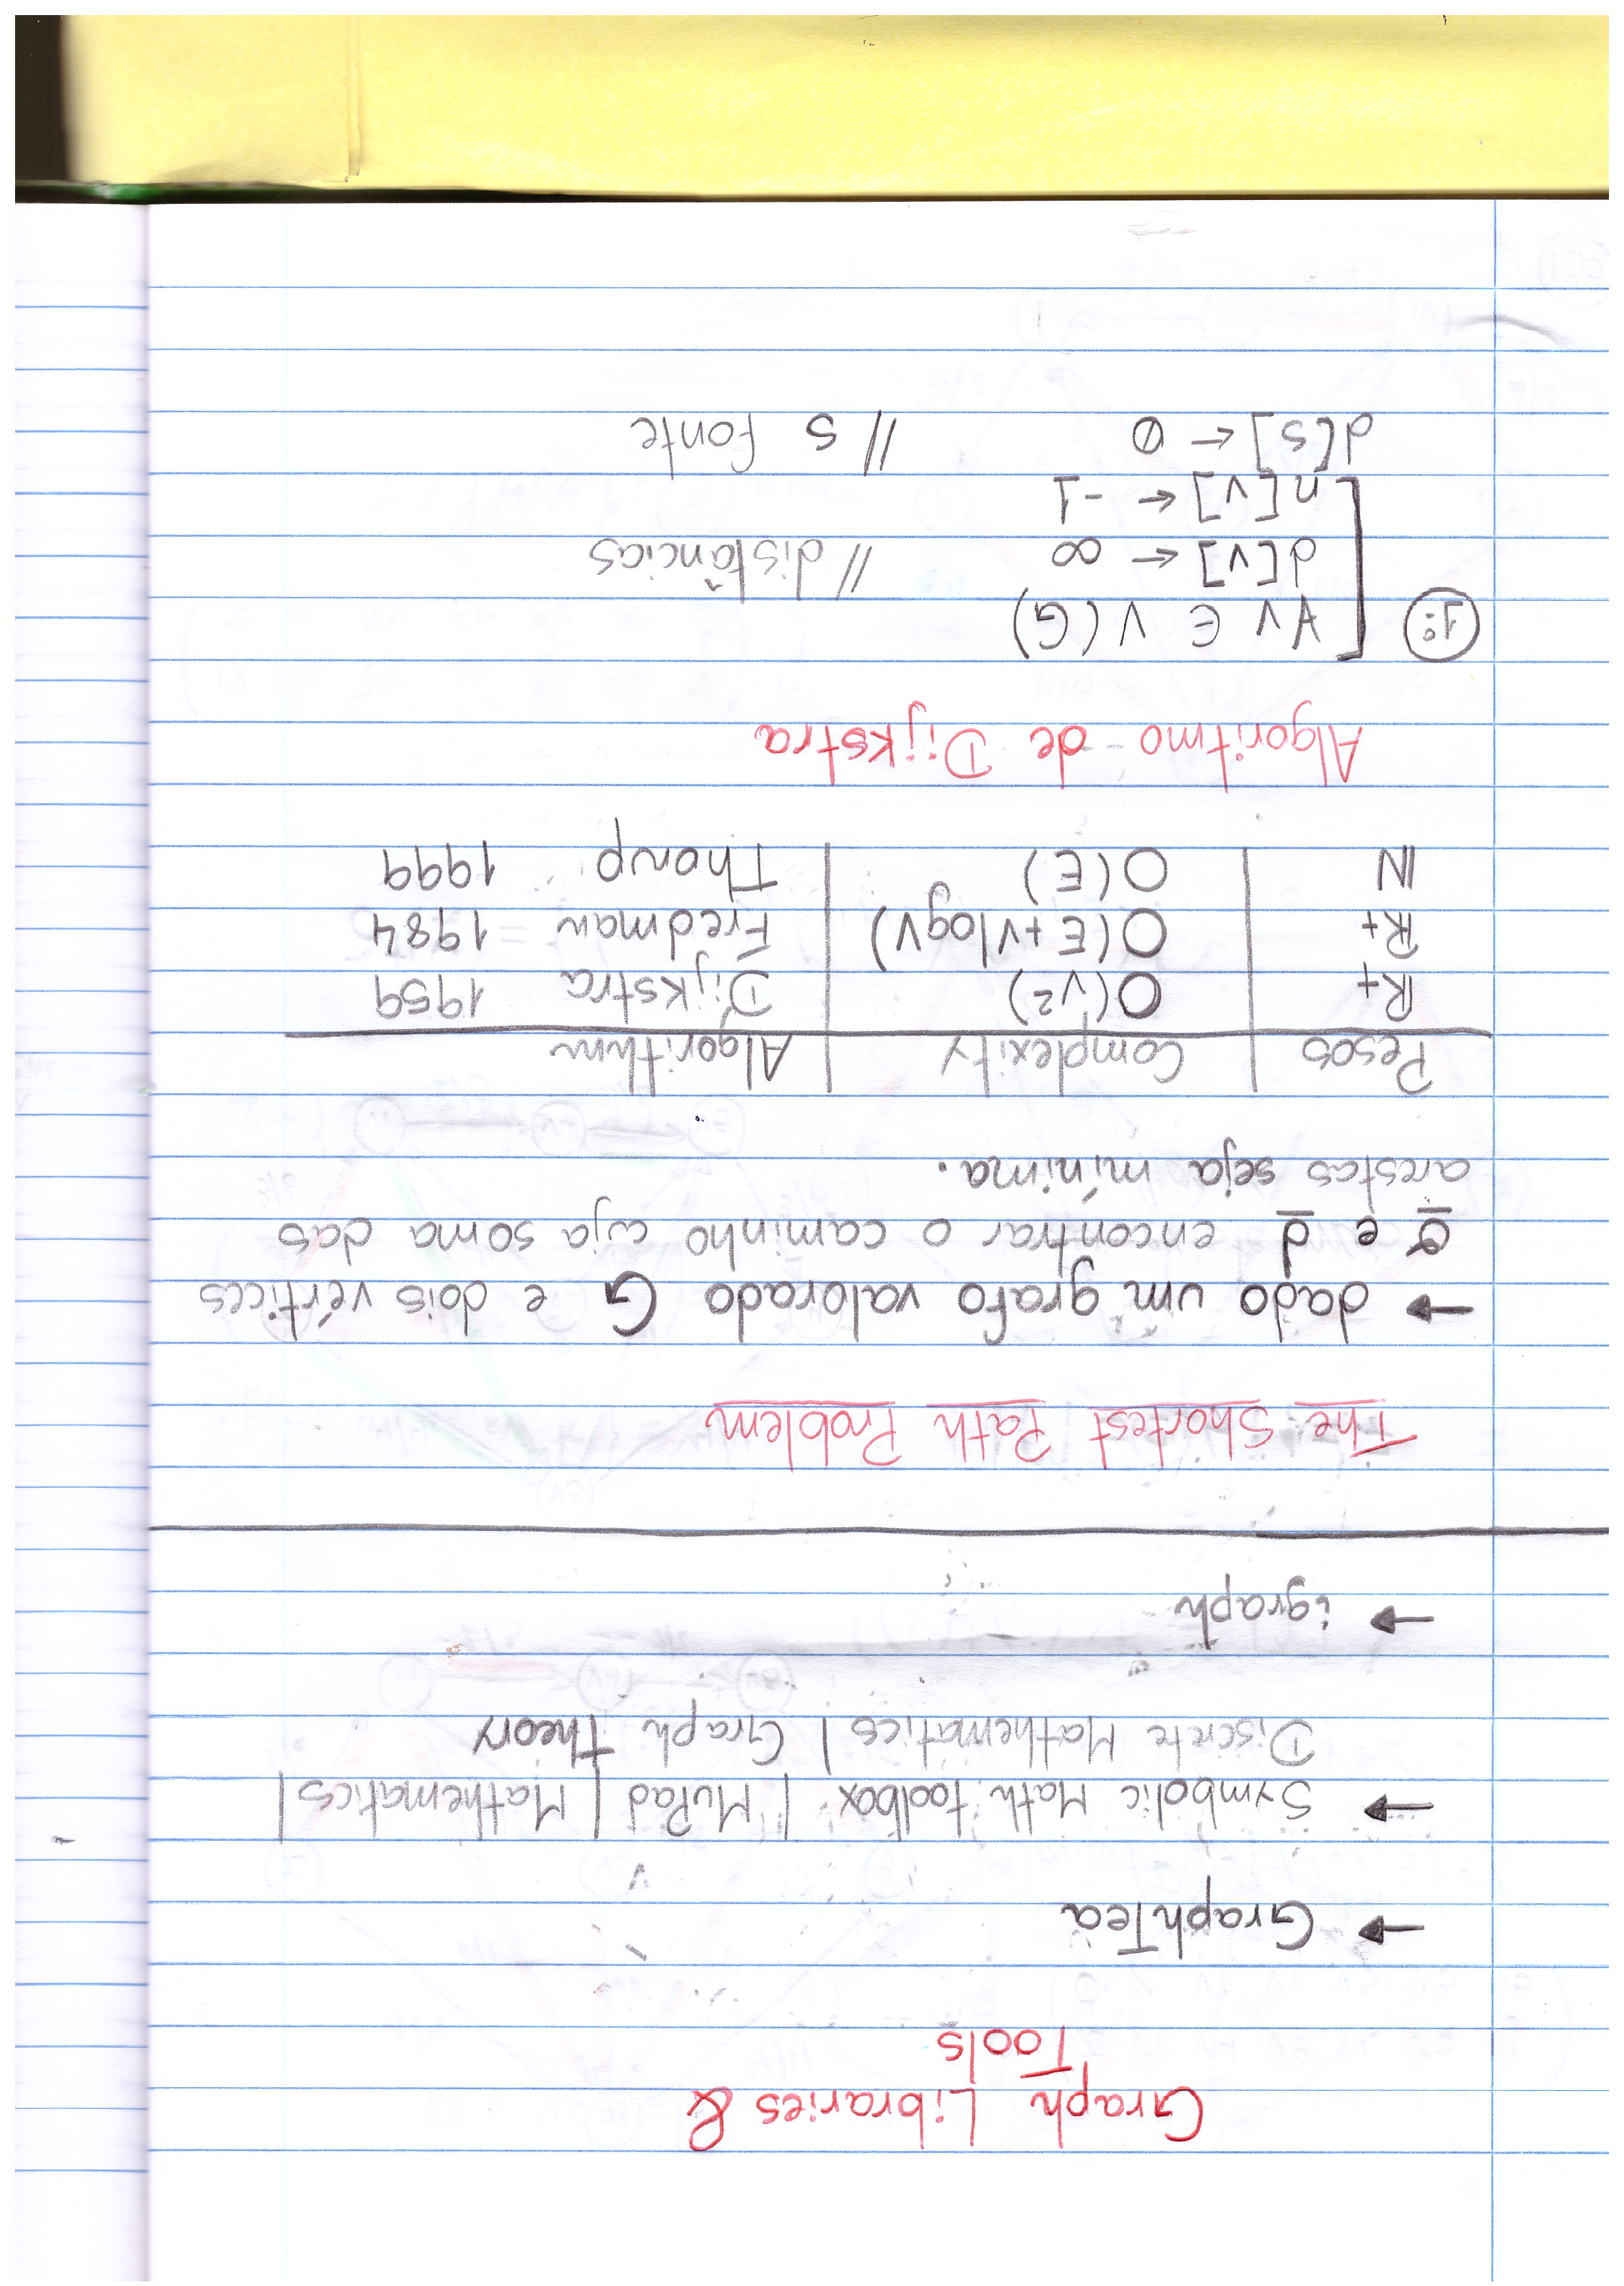 Graph Libraries &
Tools
→ GraphTea
→ Symbolic Math toolbox | MuPad | Mathematics |
Discrete Mathematics | Graph Theory
→ igraph
The Shortest Path Problem
→ dado um grafo valorado G e dois vértices
o e d encontrar o caminho cuja soma das
arestas seja mínima.
Pesos | Complexity | Algorithm
ℝ+ | O(v²) | Dijkstra 1959
ℝ+ | O(E+VlogV) | Fredman 1984
ℕ | O(E) | Thorup 1999
Algoritmo de Dijkstra
1º ∀v ∈ V(G)
d[v] ← ∞ // distâncias
n[v] ← -1
d[s] ← 0 // s fonte